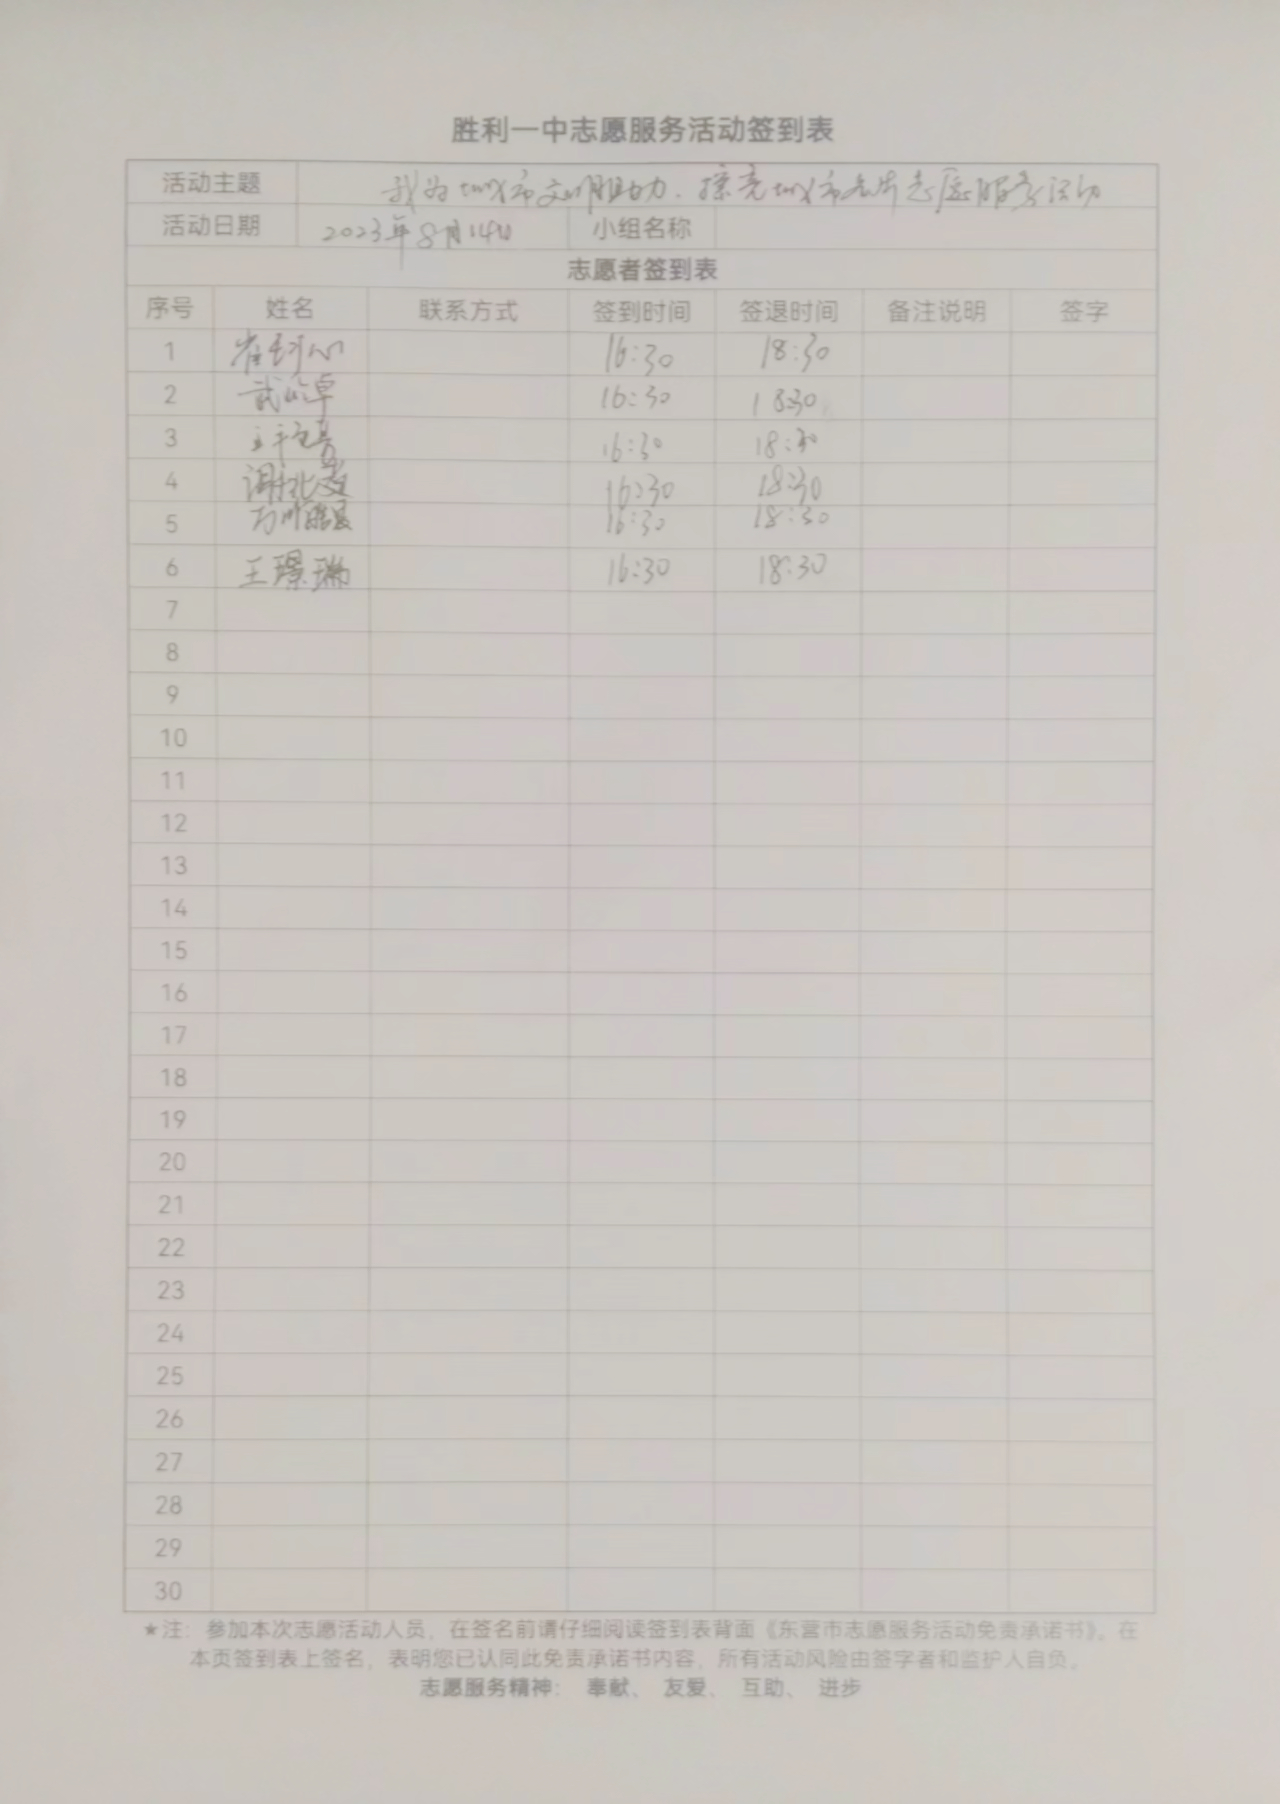 胜利一中志愿服务活动签到表
活动主题 我为城市文明助力.擦亮城市名片志愿服务活动
活动日期 2023年8月14日 小组名称
志愿者签到表
序号 姓名 联系方式 签到时间 签退时间 备注说明 签字
1 16:30 18:30
2 武 卓 16:30 18:30
3 16:30 18:30
4 谢 16:30 18:30
5 16:30 18:30
6 王璟瑞 16:30 18:30
7
8
9
10
11
12
13
14
15
16
17
18
19
20
21
22
23
24
25
26
27
28
29
30
★注：参加本次志愿活动人员，在签名前请仔细阅读签到表背面《东营市志愿服务活动免责承诺书》。在
本页签到表上签名，表明您已认同此免责承诺书内容，所有活动风险由签字者和监护人自负。
志愿服务精神： 奉献、 友爱、 互助、 进步